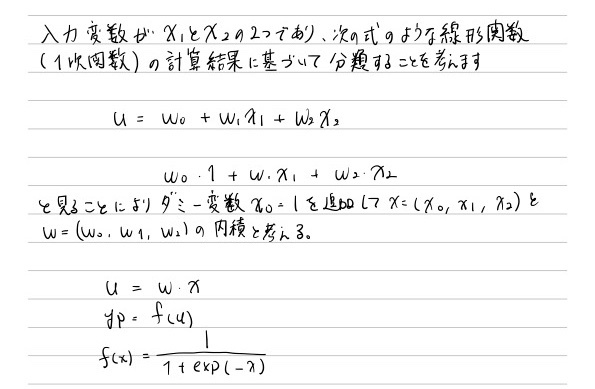 入力変数が x₁とx₂の2つであり、次の式のような線形関数
(1次関数)の計算結果に基づいて分類することを考えます
u = w₀ + w₁x₁ + w₂x₂
w₀・1 + w₁x₁ + w₂・x₂
と見ることによりダミー変数 x₀=1を追加して x=(x₀, x₁, x₂)と
w=(w₀, w1, w₂)の内積と考える。
u = w・x
yp = f(u)
f(x) = 1/(1+exp(-x))